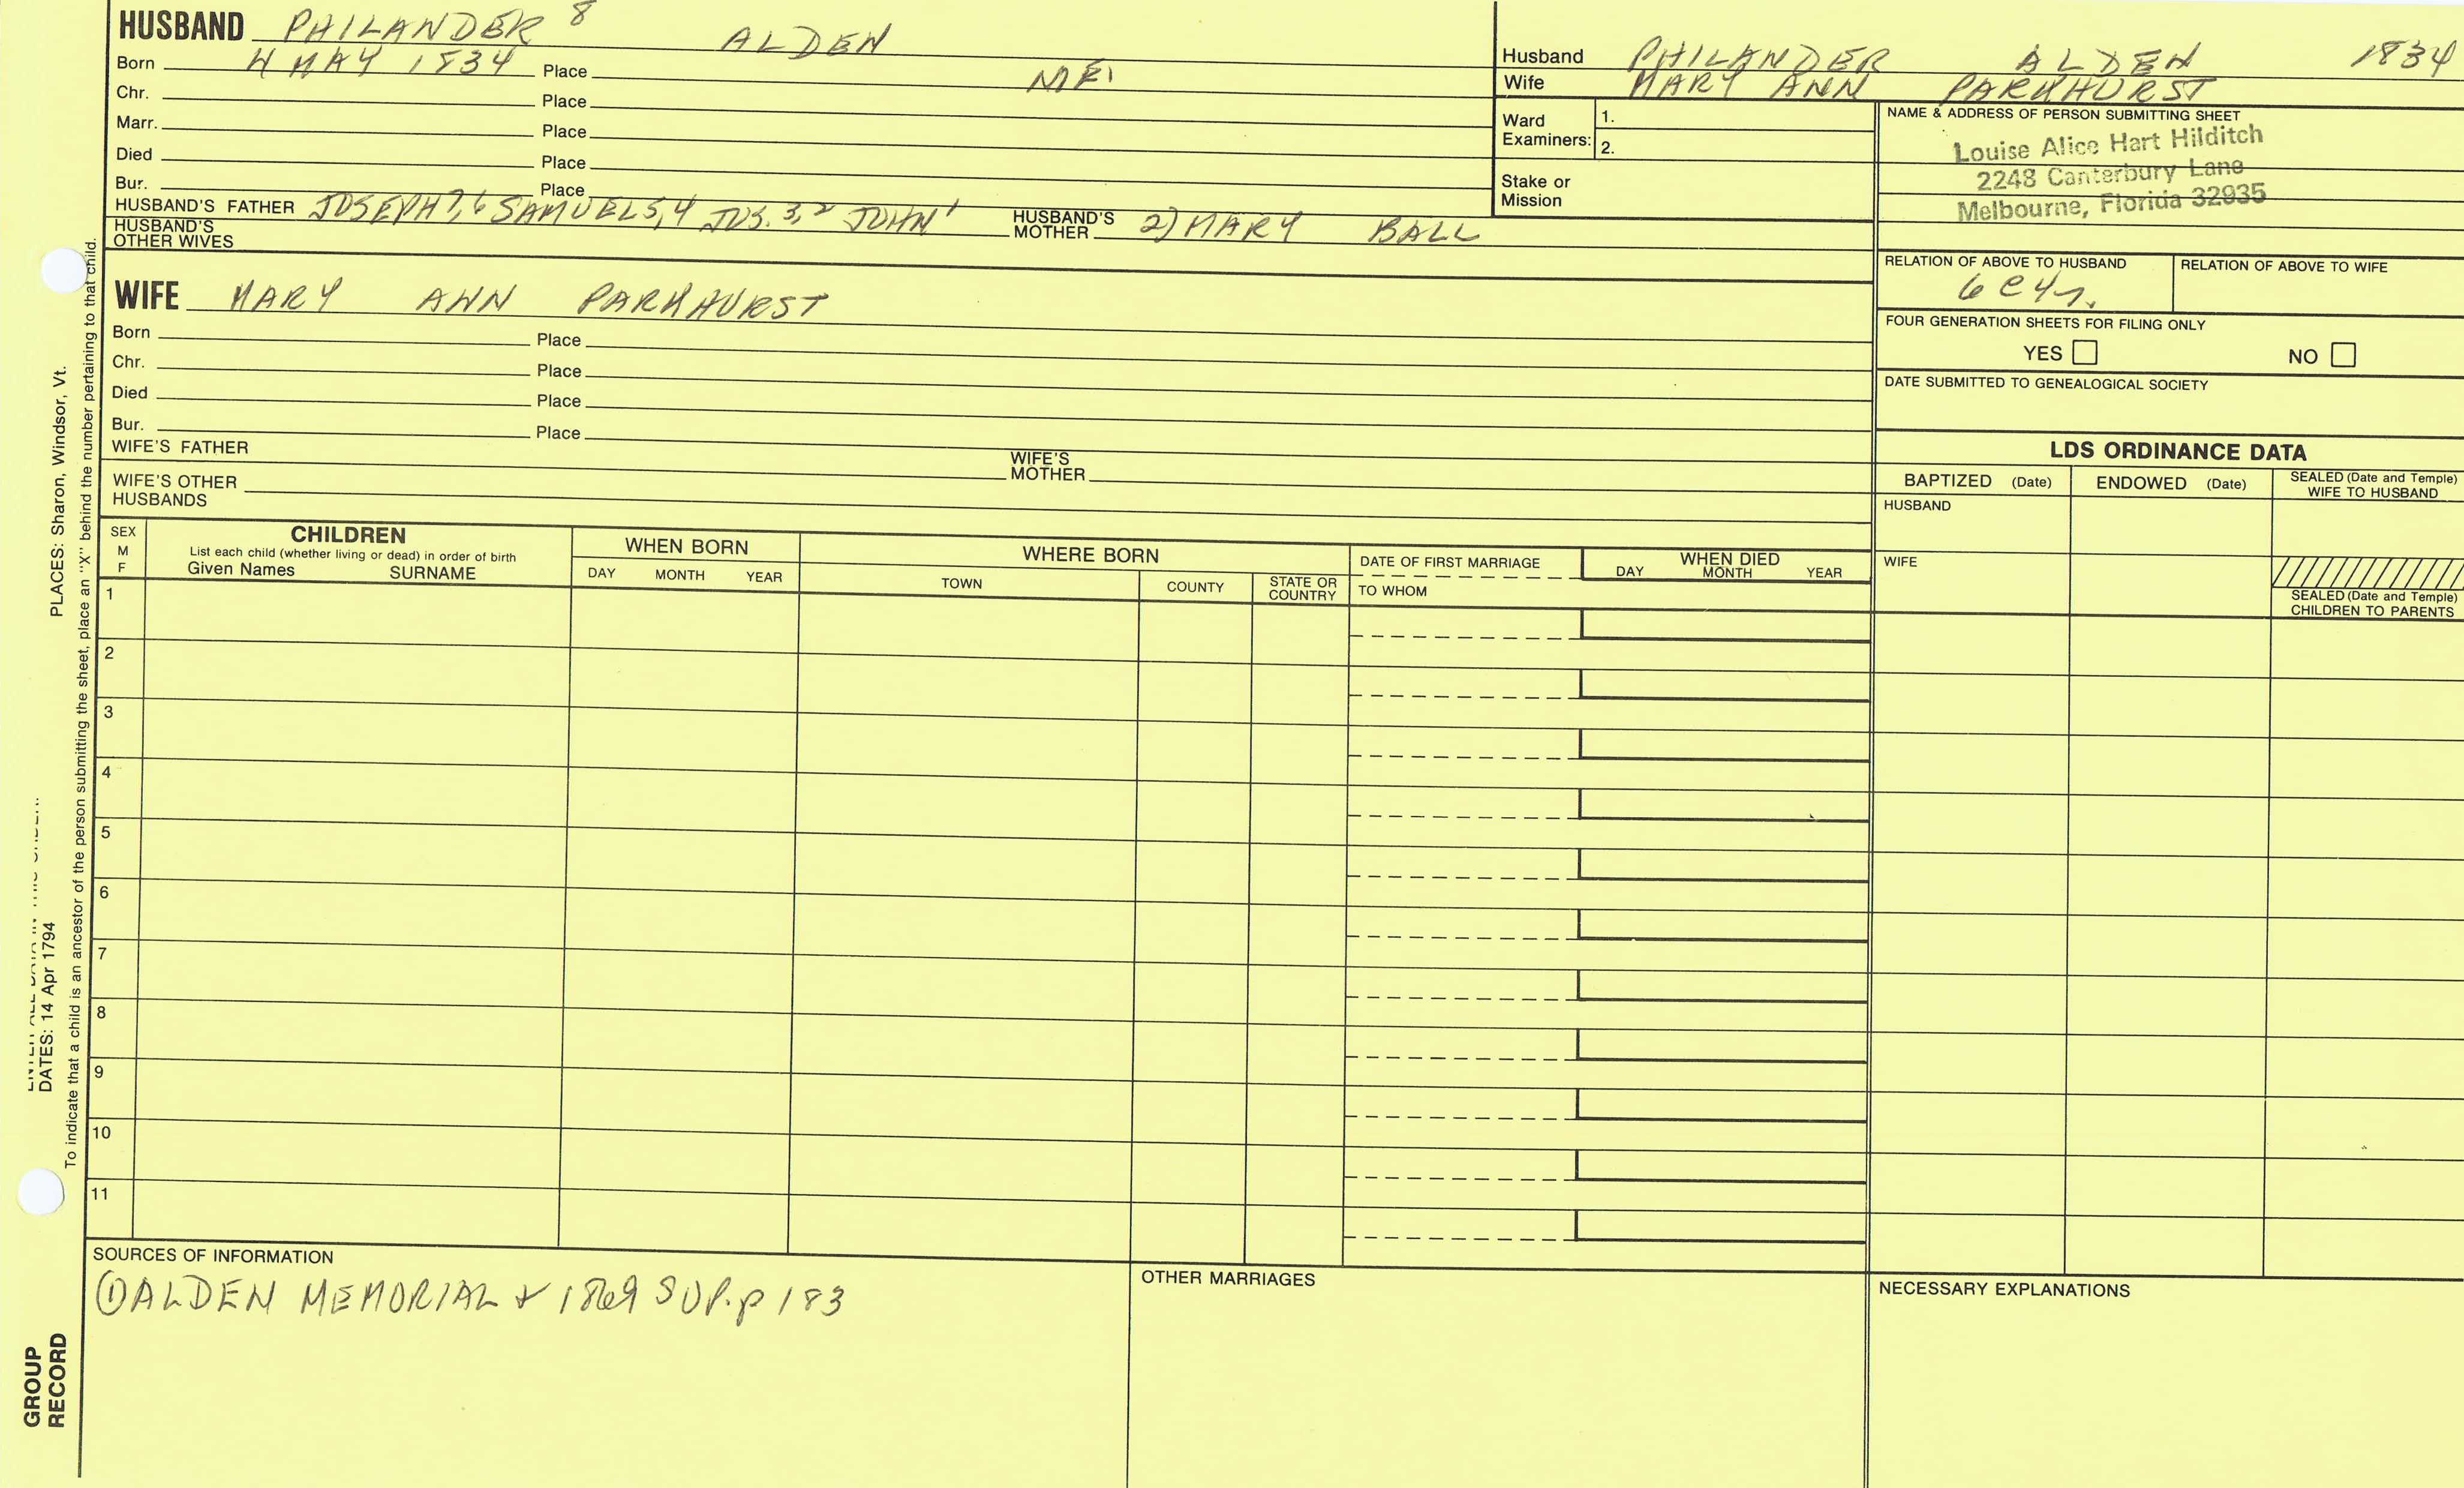 HUSBAND PHILANDER 8 ALDEN
Born 4 MAY 1834 Place ME.
Chr. Place
Marr. Place
Died Place
Bur. Place
HUSBAND'S FATHER JOSEPH 7,6 SAMUEL 5,4 JOS. 3,2 JOHN 1 HUSBAND'S MOTHER 2) MARY BALL
HUSBAND'S OTHER WIVES
Husband PHILANDER ALDEN 1834
Wife MARY ANN PARKHURST
Ward Examiners: 1.
2.
Stake or Mission
NAME & ADDRESS OF PERSON SUBMITTING SHEET
Louise Alice Hart Hilditch
2248 Canterbury Lane
Melbourne, Florida 32935
RELATION OF ABOVE TO HUSBAND RELATION OF ABOVE TO WIFE
6 C 4 r.
FOUR GENERATION SHEETS FOR FILING ONLY
YES NO
DATE SUBMITTED TO GENEALOGICAL SOCIETY
WIFE MARY ANN PARKHURST
Born Place
Chr. Place
Died Place
Bur. Place
WIFE'S FATHER WIFE'S MOTHER
WIFE'S OTHER HUSBANDS
LDS ORDINANCE DATA
BAPTIZED (Date) ENDOWED (Date) SEALED (Date and Temple) WIFE TO HUSBAND
HUSBAND
WIFE
SEALED (Date and Temple) CHILDREN TO PARENTS
SEX M F
CHILDREN
List each child (whether living or dead) in order of birth
Given Names SURNAME
WHEN BORN
DAY MONTH YEAR
WHERE BORN
TOWN COUNTY STATE OR COUNTRY
DATE OF FIRST MARRIAGE
TO WHOM
WHEN DIED
DAY MONTH YEAR
1
2
3
4
5
6
7
8
9
10
11
SOURCES OF INFORMATION
① ALDEN MEMORIAL + 1869 SUP. p 183
OTHER MARRIAGES
NECESSARY EXPLANATIONS
DATES: 14 Apr 1794
PLACES: Sharon, Windsor, Vt.
To indicate that a child is an ancestor of the person submitting the sheet, place an "X" behind the number pertaining to that child.
GROUP
RECORD